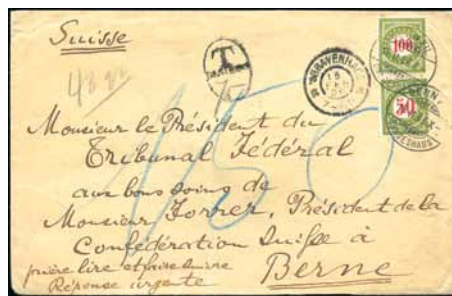 Suisse
T
'S GRAVENHAGE
100
50
150
Monsieur le Président du
Tribunal Fédéral
aux bons soins de
Monsieur Forrer, Président de la
Confédération Suisse à
Berne
prière lire et faire suivre
Réponse urgente